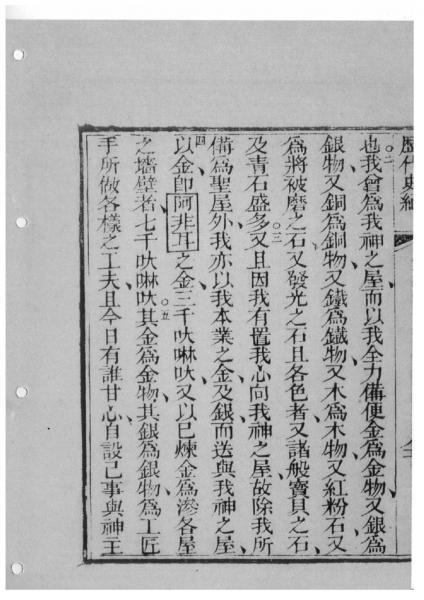 歷代史紀
也○二我曾爲我神之屋而以我全力備便金爲金物又銀爲
銀物又銅爲銅物又鐵爲鐵物又木爲木物又紅粉石又
爲將被磨之石又發光之石且各色者又諸般寶貝之石
及青石盛多○三又且因我有置我心向我神之屋故除我所
備爲聖屋外我亦以我本業之金及銀而送與我神之屋
○四以金卽阿非耳之金三千吠啉吠又以已煉金爲滲各屋
之墻壁者七千吠啉吠○五其金爲金物其銀爲銀物爲工匠
手所做各樣之工夫且今日有誰甘心自設已事與神主